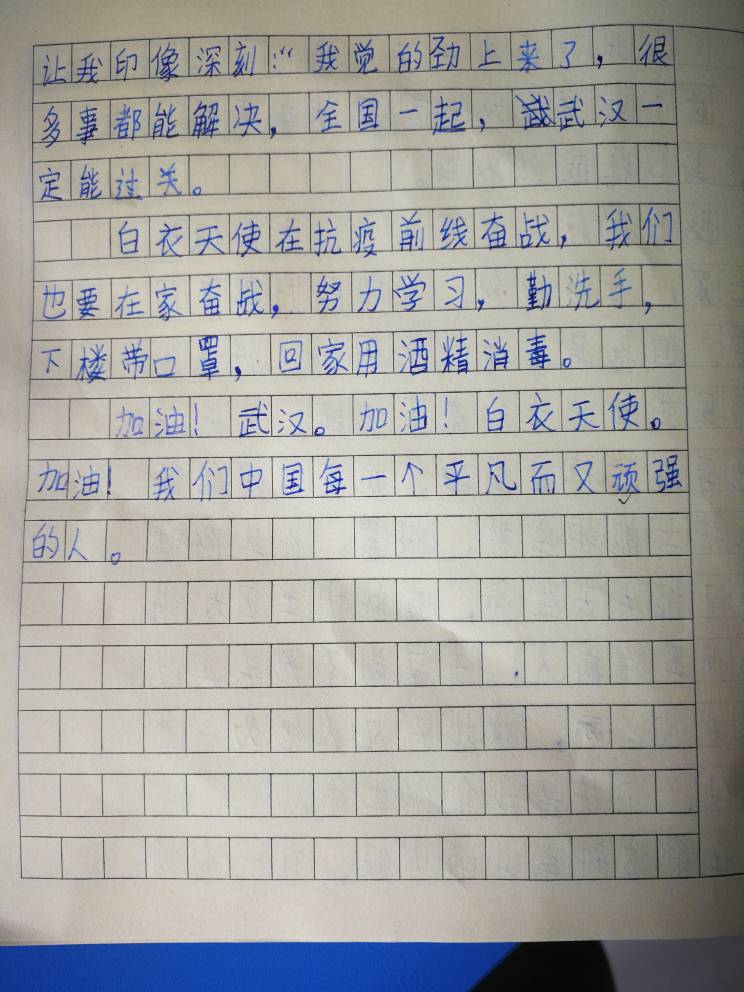 让我印像深刻:“我觉的劲上来了，很
多事都能解决，全国一起，武汉一
定能过关。
白衣天使在抗疫前线奋战，我们
也要在家奋战，努力学习，勤洗手，
下楼带口罩，回家用酒精消毒。
加油！武汉。加油！白衣天使。
加油！我们中国每一个平凡而又顽强
的人。